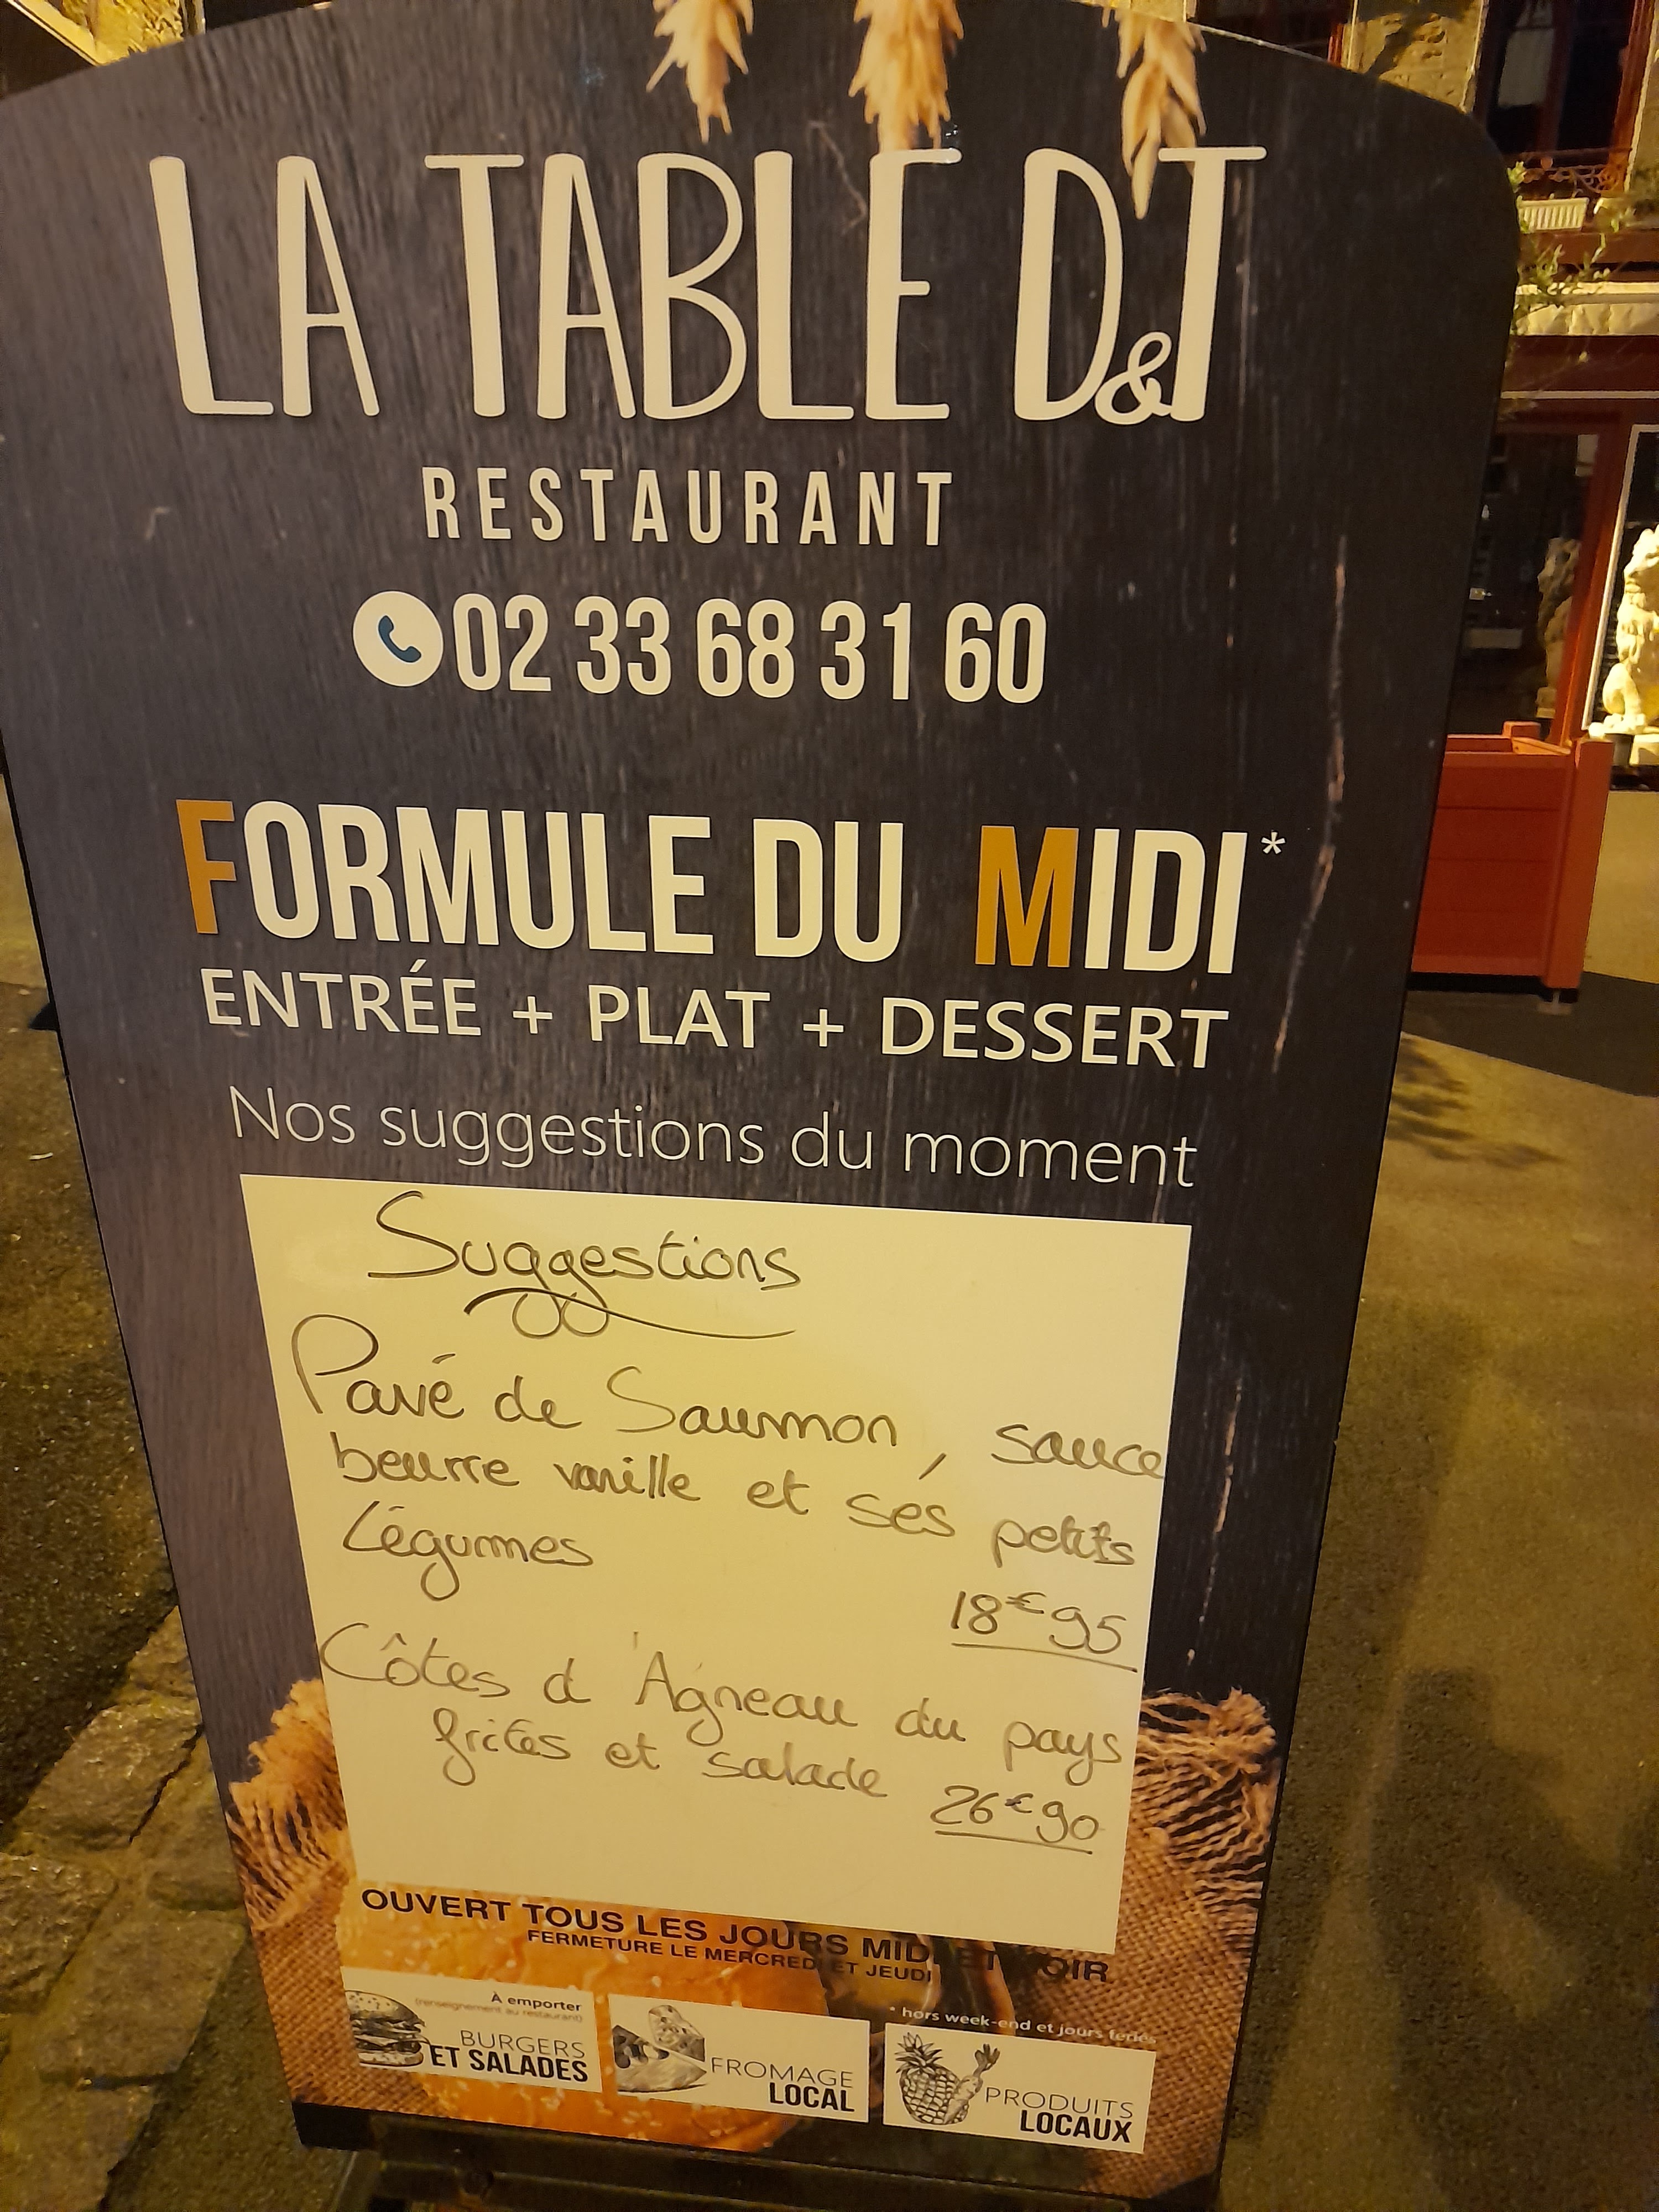 LA TABLE D&T
RESTAURANT
02 33 68 31 60
FORMULE DU MIDI*
ENTRÉE + PLAT + DESSERT
Nos suggestions du moment
Suggestions
Pavé de Saumon, sauce
beurre vanille et ses petits
Légumes
18€95
Côtes d'Agneau du pays
frites et salade
26€90
OUVERT TOUS LES JOURS MIDI ET SOIR
FERMETURE LE MERCREDI ET JEUDI
* hors week-end et jours feriés
À emporter
(renseignement au restaurant)
BURGERS
ET SALADES
FROMAGE
LOCAL
PRODUITS
LOCAUX